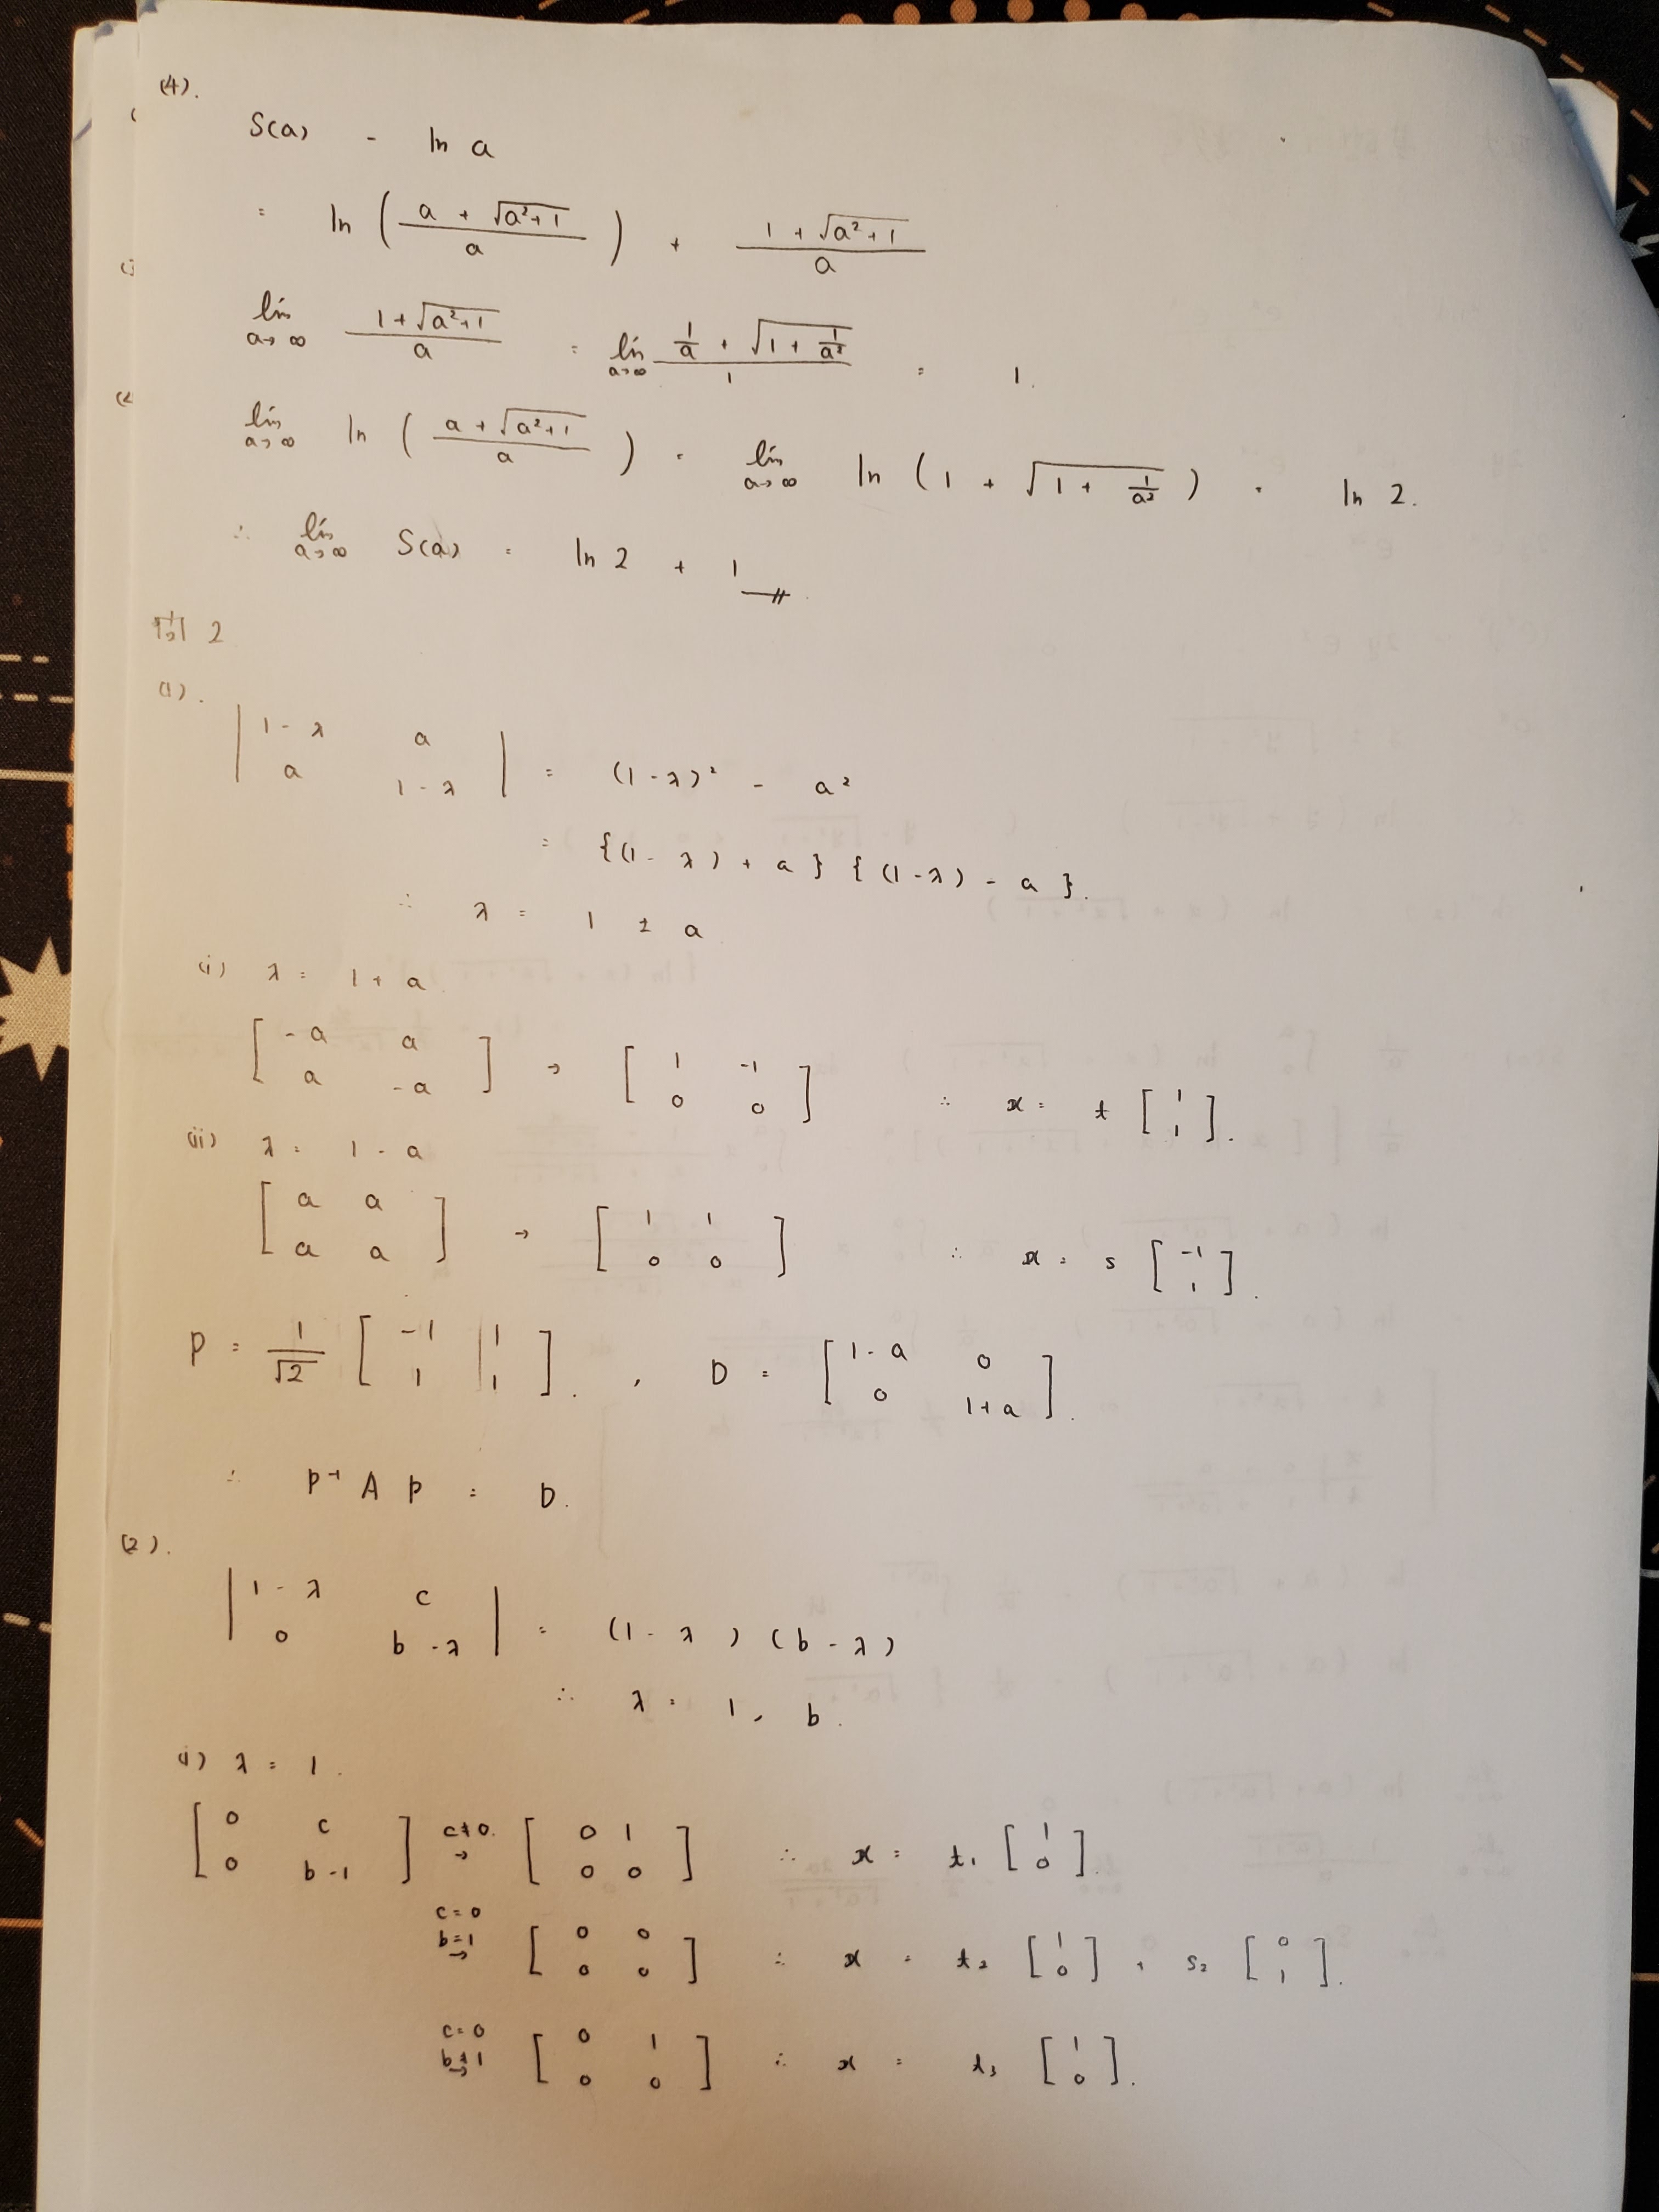 (4).
S(a) - ln a
= ln ( (a + √(a²+1)) / a ) + (1 + √(a²+1)) / a
lim_{a→∞} (1 + √(a²+1)) / a = lim_{a→∞} (1/a + √(1 + 1/a²)) / 1 = 1.
lim_{a→∞} ln ( (a + √(a²+1)) / a ) = lim_{a→∞} ln ( 1 + √(1 + 1/a²) ) = ln 2.
∴ lim_{a→∞} S(a) = ln 2 + 1
問 2
(1).
| 1-λ a ; a 1-λ | = (1-λ)² - a²
= {(1-λ) + a} {(1-λ) - a}.
∴ λ = 1 ± a
(i) λ = 1 + a
[ -a a ; a -a ] → [ 1 -1 ; 0 0 ] ∴ x = t [ 1 ; 1 ].
(ii) λ = 1 - a
[ a a ; a a ] → [ 1 1 ; 0 0 ] ∴ x = s [ -1 ; 1 ].
P = 1/√2 [ -1 | 1 ; 1 | 1 ]. , D = [ 1-a 0 ; 0 1+a ].
∴ P⁻¹ A P = D.
(2).
| 1-λ c ; 0 b-λ | = (1-λ)(b-λ)
∴ λ = 1, b.
(i) λ = 1.
[ 0 c ; 0 b-1 ] c≠0. → [ 0 1 ; 0 0 ] ∴ x = t₁ [ 1 ; 0 ].
c=0 b=1 → [ 0 0 ; 0 0 ] ∴ x = t₂ [ 1 ; 0 ] + s₂ [ 0 ; 1 ].
c=0 b≠1 → [ 0 1 ; 0 0 ] ∴ x = t₃ [ 1 ; 0 ].